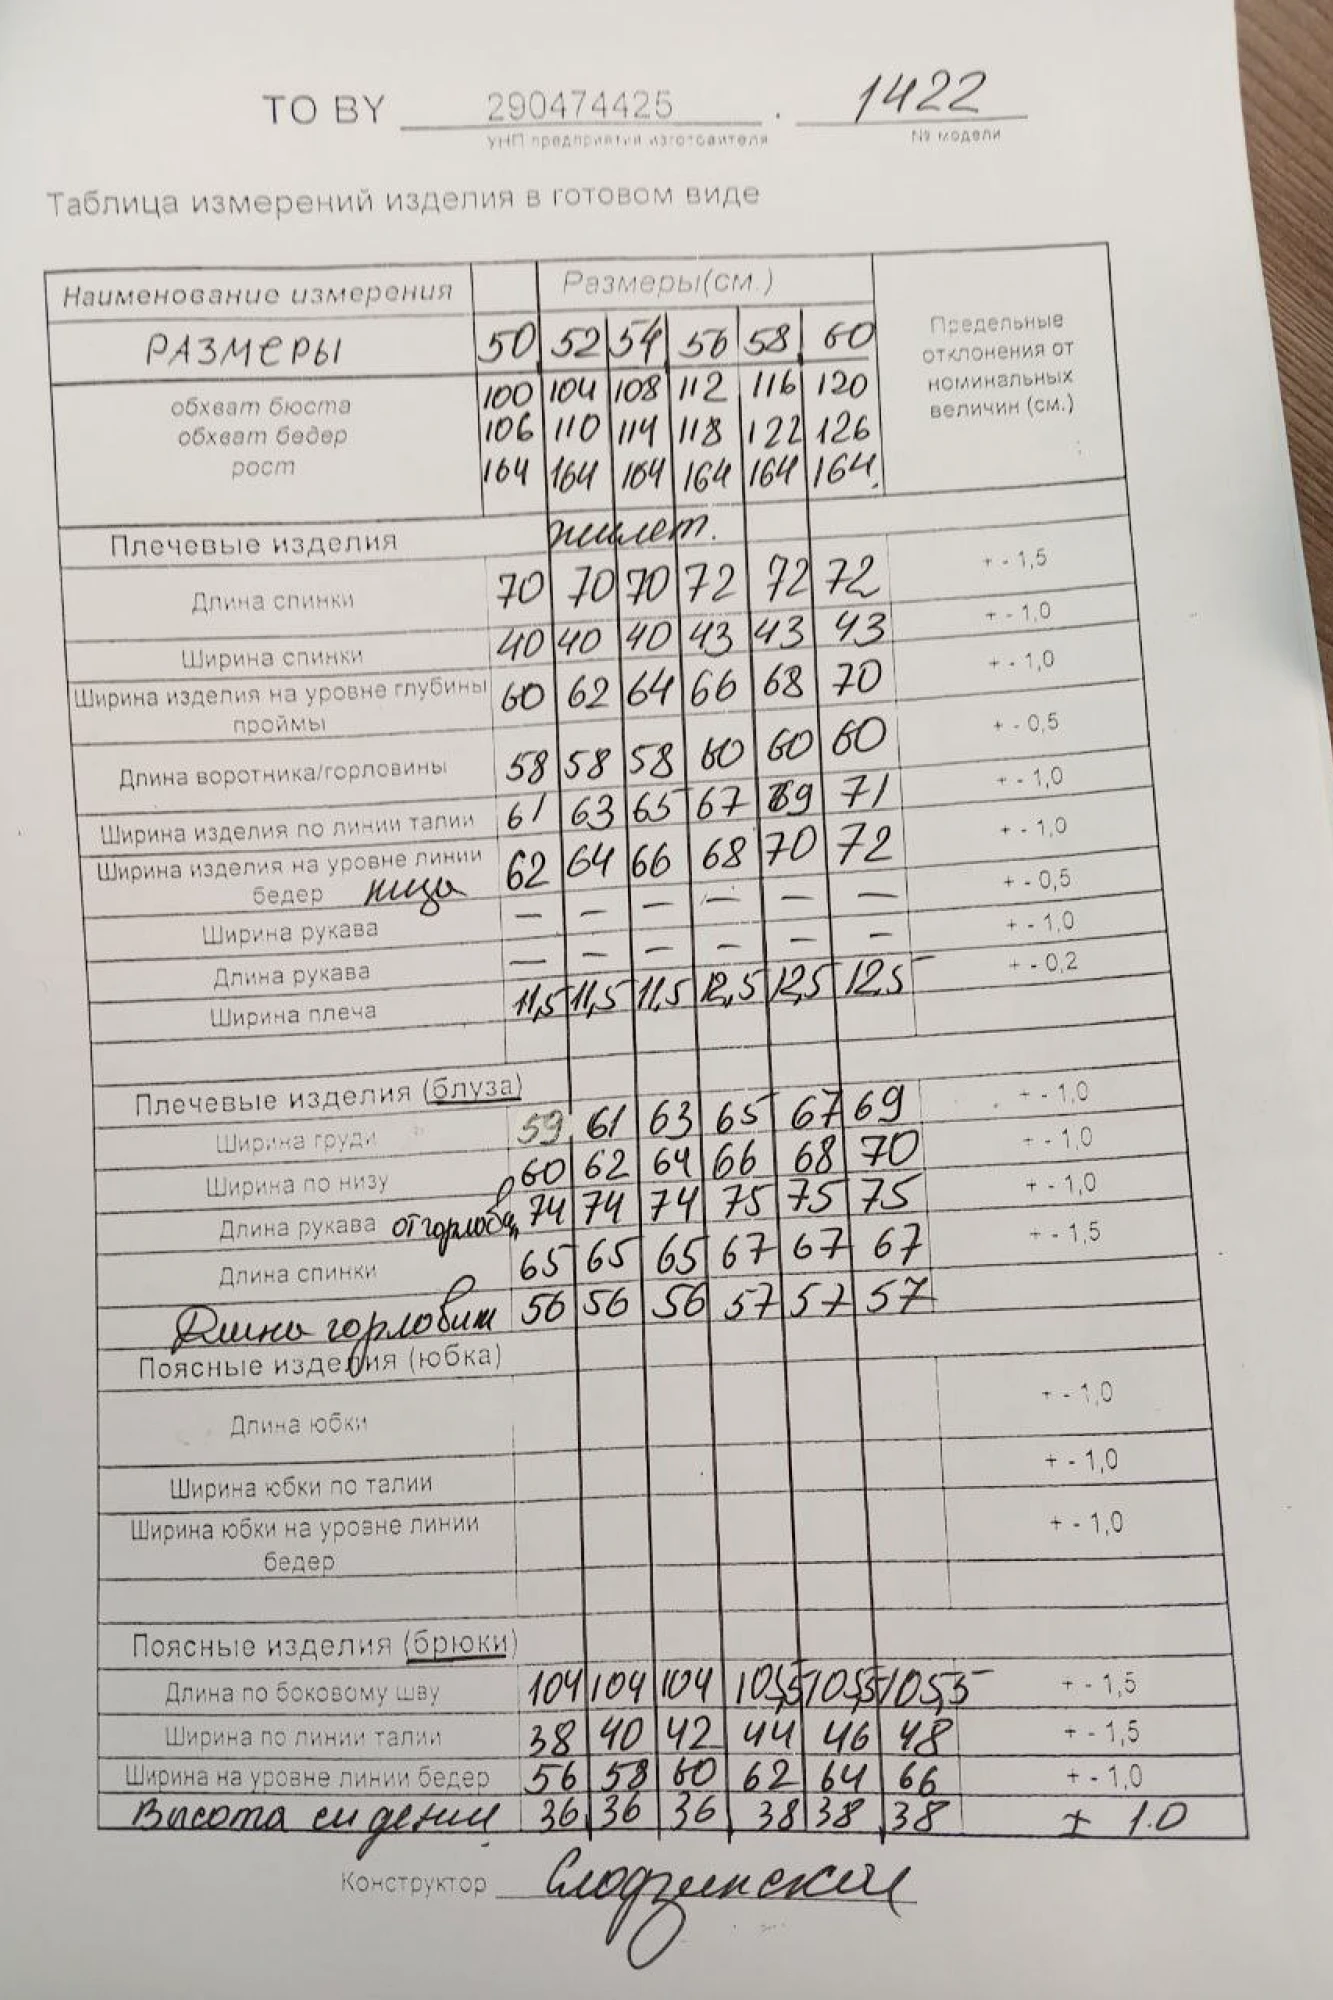 TO BY 290474425 . 1422
УНП предприятия изготовителя № модели
Таблица измерений изделия в готовом виде
Наименование измерения Размеры(см.) Предельные отклонения от номинальных величин (см.)
РАЗМЕРЫ 50 52 54 56 58 60
обхват бюста 100 104 108 112 116 120
обхват бедер 106 110 114 118 122 126
рост 164 164 164 164 164 164
Плечевые изделия жилет.
Длина спинки 70 70 70 72 72 72 + - 1,5
Ширина спинки 40 40 40 43 43 43 + - 1,0
Ширина изделия на уровне глубины проймы 60 62 64 66 68 70 + - 1,0
Длина воротника/горловины 58 58 58 60 60 60 + - 0,5
Ширина изделия по линии талии 61 63 65 67 69 71 + - 1,0
Ширина изделия на уровне линии бедер низа 62 64 66 68 70 72 + - 1,0
Ширина рукава — — — — — — + - 0,5
Длина рукава — — — — — — + - 1,0
Ширина плеча 11,5 11,5 11,5 12,5 12,5 12,5 + - 0,2
Плечевые изделия (блуза)
Ширина груди 59 61 63 65 67 69 + - 1,0
Ширина по низу 60 62 64 66 68 70 + - 1,0
Длина рукава от горлов. 74 74 74 75 75 75 + - 1,0
Длина спинки 65 65 65 67 67 67 + - 1,5
Длина горловин 56 56 56 57 57 57
Поясные изделия (юбка)
Длина юбки + - 1,0
Ширина юбки по талии + - 1,0
Ширина юбки на уровне линии бедер + - 1,0
Поясные изделия (брюки)
Длина по боковому шву 104 104 104 105,5 105,5 105,5 + - 1,5
Ширина по линии талии 38 40 42 44 46 48 + - 1,5
Ширина на уровне линии бедер 56 58 60 62 64 66 + - 1,0
Высота сидения 36 36 36 38 38 38 ± 1.0
Конструктор